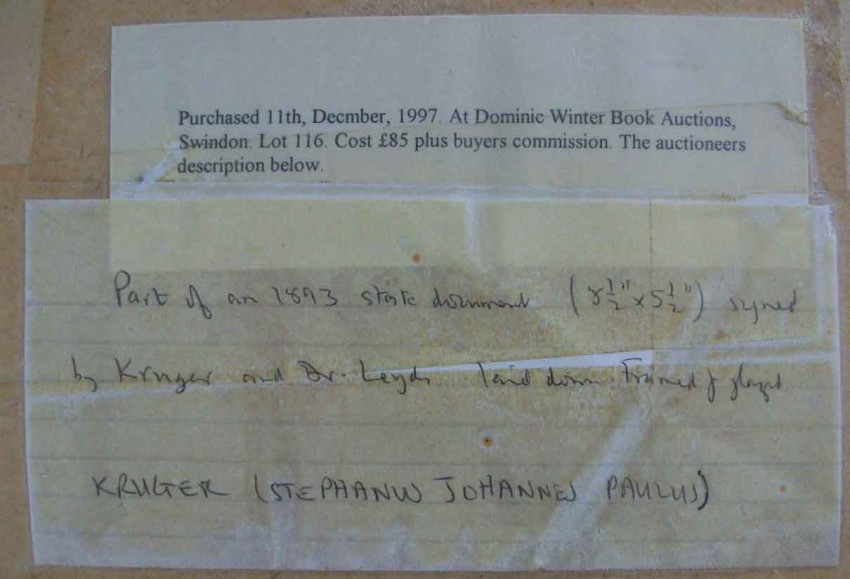 Purchased 11th, Decmber, 1997. At Dominic Winter Book Auctions,
Swindon. Lot 116. Cost £85 plus buyers commission. The auctioneers
description below.
Part of an 1893 state document (8½"x5½") signed
by Kruger and Dr. Leyds laid down. Framed & glazed
KRUGER (STEPHANUS JOHANNES PAULUS)